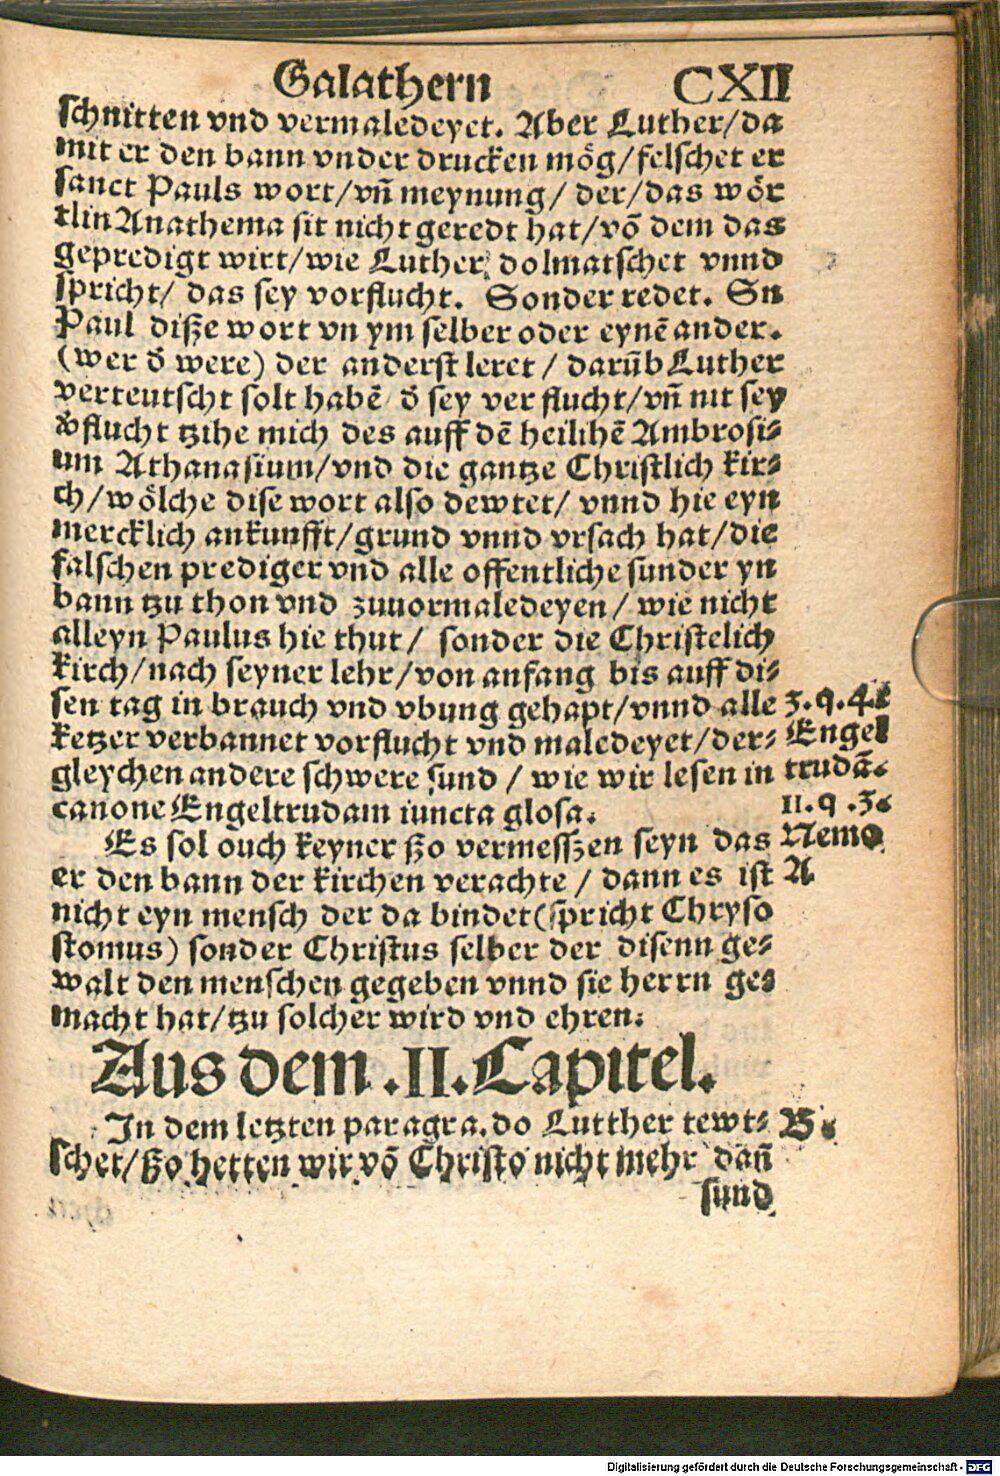 Galathern CXII
schnitten vnd vermaledeyet. Aber Luther/da
mit er den bann vnder drucken mög/felschet er
sanct Pauls wort/vn̄ meynung/ der/das wör
tlin Anathema sit nicht geredt hat/vō dem das
gepredigt wirt/wie Luther dolmatschet vnnd
spricht/ das sey vorflucht. Sonder redet. Sn
Paul diße wort vn ym selber oder eynē ander.
(wer d̄ were) der anderst leret / darūb Luther
verteutscht solt habē d̄ sey ver flucht/vn̄ nit sey
v̄flucht tzihe mich des auff dē heilihē Ambrosi-
um Athanasium/vnd die gantze Christlich kir-
ch/wölche dise wort also dewtet/ vnnd hie eyn
mercklich ankunfft/grund vnnd vrsach hat/die
falschen prediger vnd alle offentliche sunder yn
bann tzu thon vnd zuuormaledeyen/ wie nicht
alleyn Paulus hie thut/ sonder die Christelich
kirch/nach seyner lehr/von anfang bis auff di-
sen tag in brauch vnd vbung gehapt/vnnd alle
ketzer verbannet vorflucht vnd maledeyet/der-
gleychen andere schwere sund / wie wir lesen in
canone Engeltrudam iuncta glosa.
3.q.4.
Engel
trudā.
11.q.3.
Nemo
A
Es sol ouch keyner ßo vermesszen seyn das
er den bann der kirchen verachte / dann es ist
nicht eyn mensch der da bindet (spricht Chryso
stomus) sonder Christus selber der disenn ge-
walt den menschen gegeben vnnd sie herrn ge-
macht hat/tzu solcher wird vnd ehren.
Aus dem .II. Capitel.
In dem letzten paragra. do Lutther tewt- B.
schet/ßo hetten wir vō Christo nicht mehr dan̄
sund
Digitalisierung gefördert durch die Deutsche Forschungsgemeinschaft - DFG